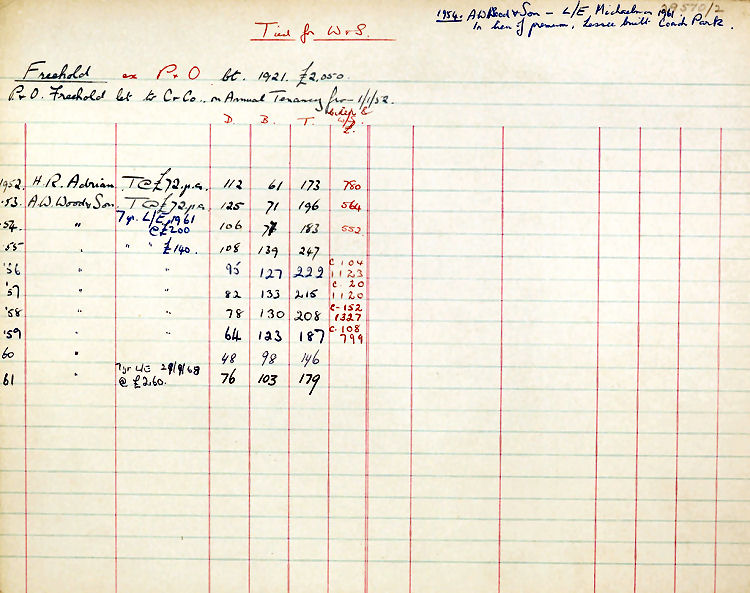 29570/2
1954. A W Wood & Son - L/E, Michaelmas 1961
In lieu of premium, Lessee built Coach Park.
Tied for W & S.
Freehold ex P & O bt. 1921. £2,050.
P & O. Freehold let to C & Co., on Annual Tenancy from 1/1/52.
D. B. T. £.
1952. H. R. Adrian. T @ £72. p.a. 112 61 173 780
'53. A. W. Wood & Son. T @ £72. p.a. 125 71 196 564
7 yr. L/E, 1961
'54. " @ £200 106 77 183 552
'55 " " " £140. 108 139 247
C 104
'56 " " 95 127 222 1123
C 20
'57 " " 82 133 215 1120
C-152
'58 " " 78 130 208 1327
C-108
'59 " " 64 123 187 799
60 " 48 98 146
7 yr L/E 29/9/68
61 " @ £260. 76 103 179